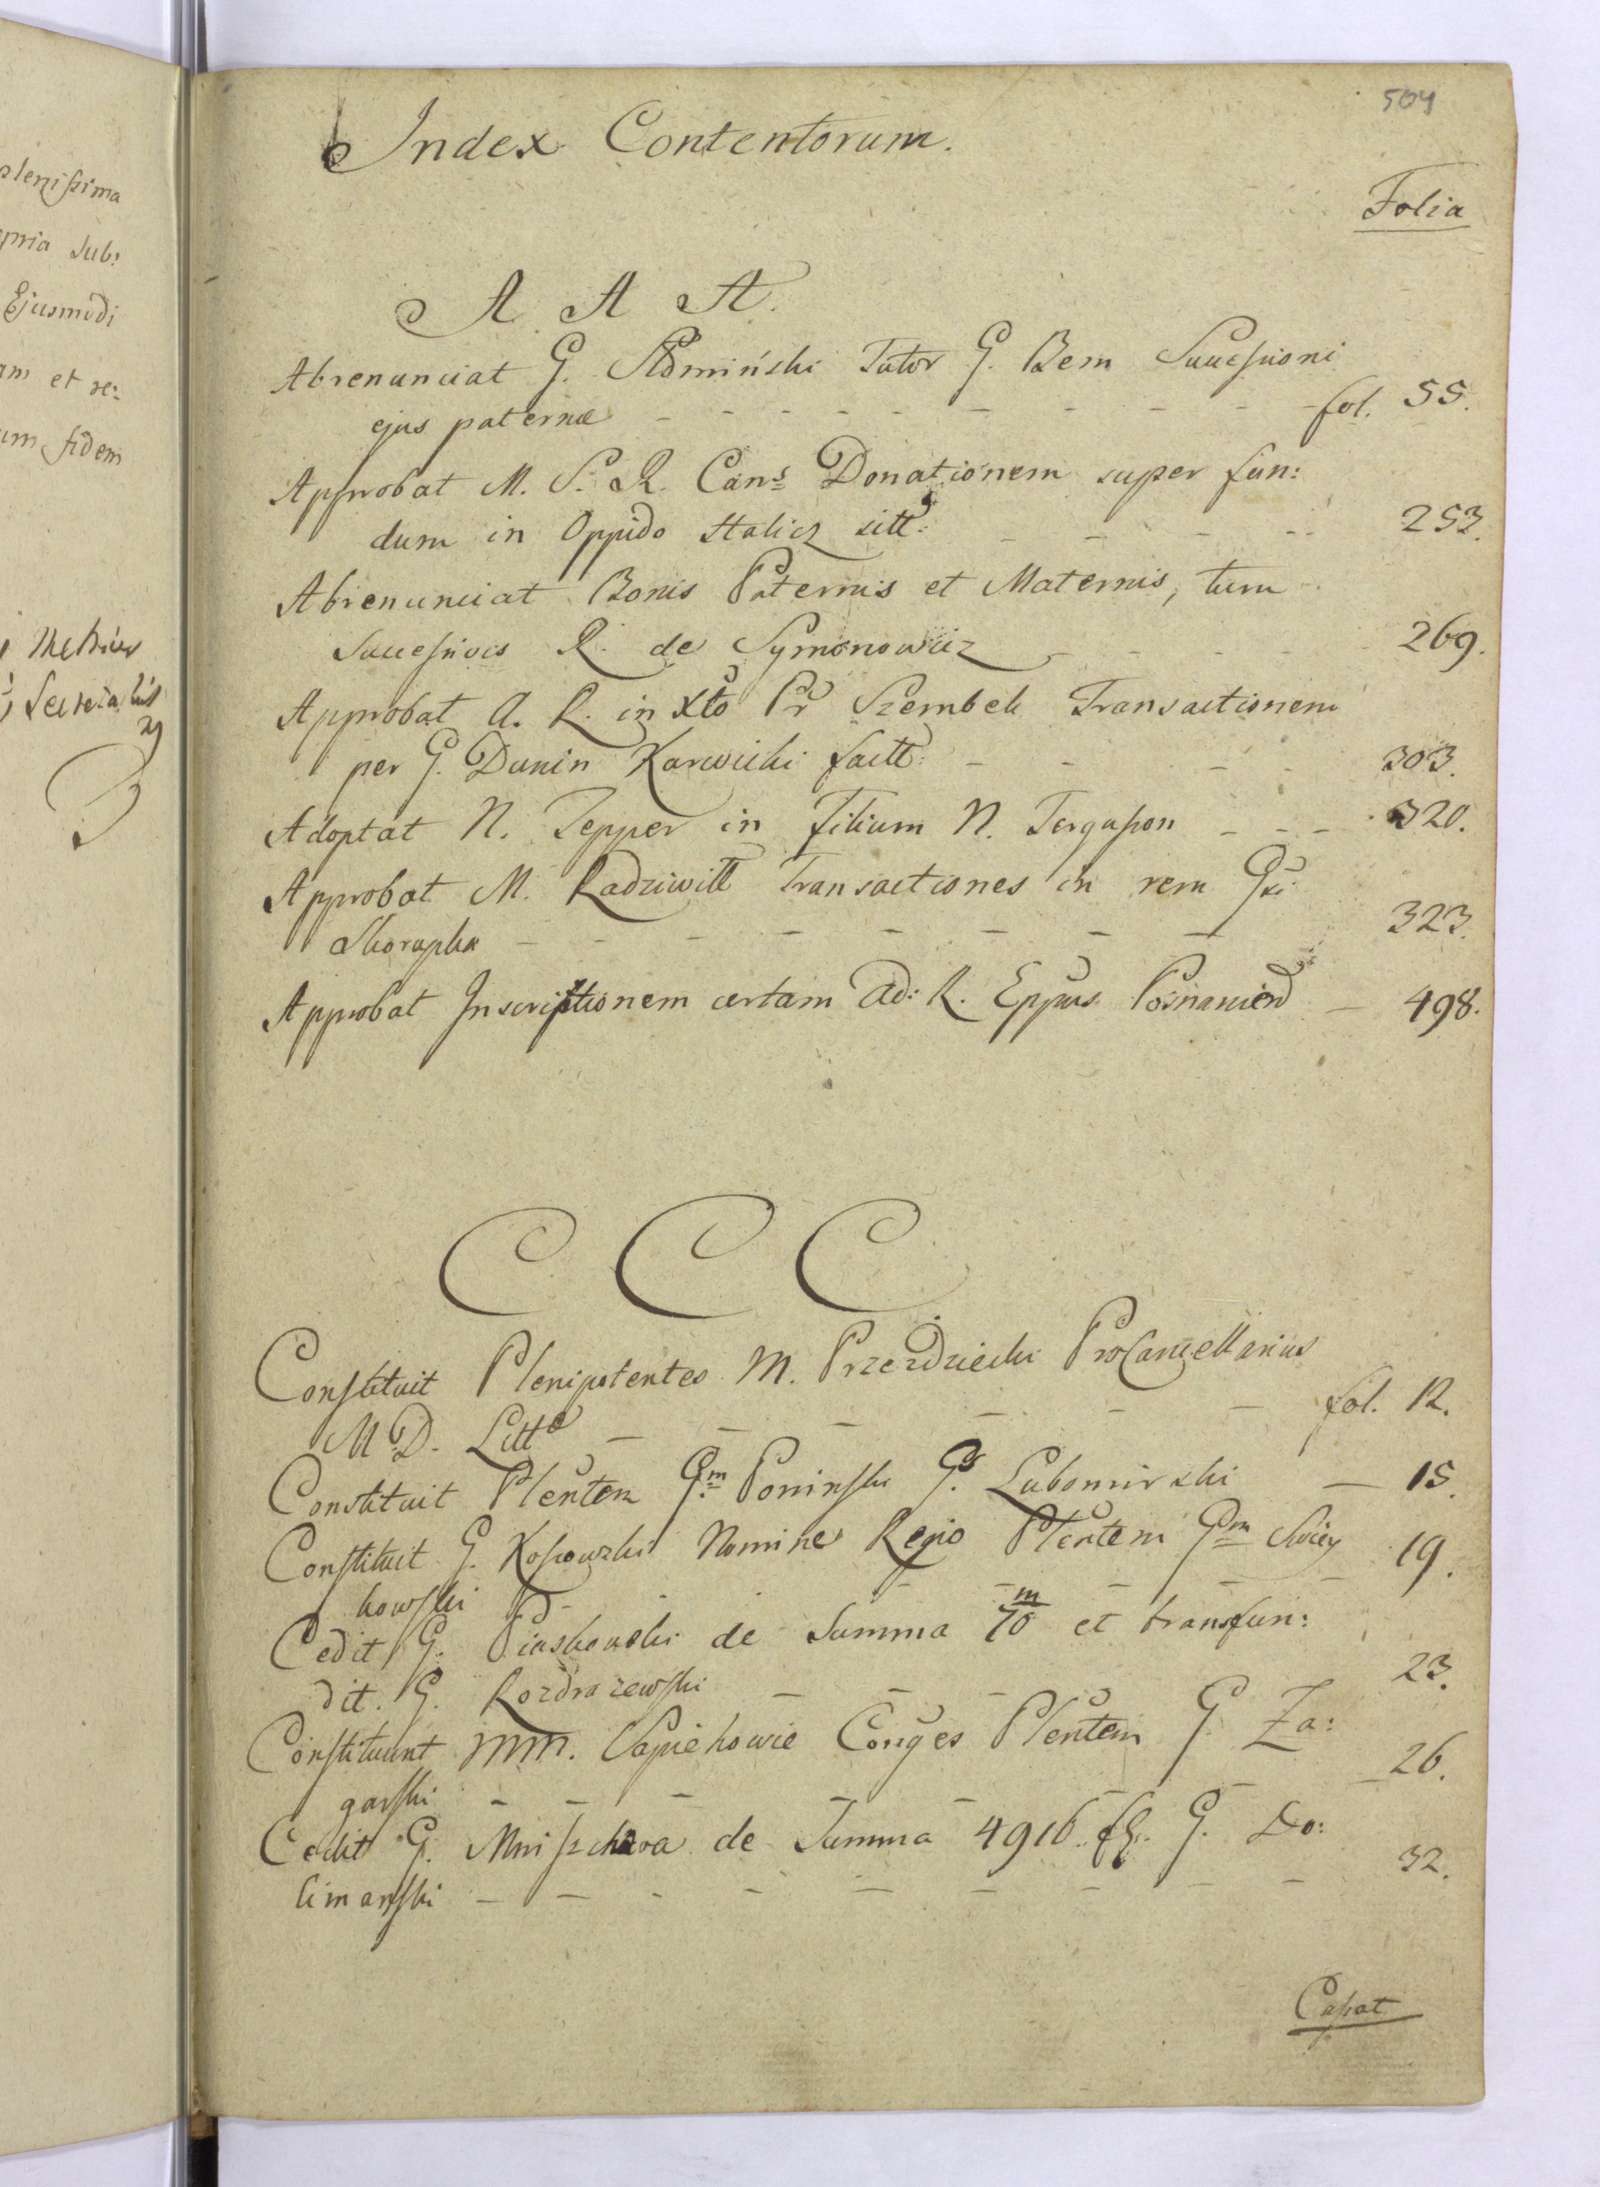 plenissima
pria sub:
Ejusmodi
am et re:
um fidem
Metrices
Secretarius
504
Index Contentorum.
Folia
A A A.
Abrenunciat G. Adminski Tutor G. Bem Successioni
ejus paternæ - - - - - - - - - fol. 55.
Approbat M. S. R. Cans Donationem super fun:
dum in Oppido Halicz sitt: - - - - 253.
Abrenunciat Bonis Paternis et Maternis, tum
Successivis R. de Symonowicz - - - - 269.
Approbat A. R. in Xto Pr Szembek Transactionem
per G. Dunin Karwicki factt: - - - - 303.
Adoptat N. Tepper in Filium N. Fergusson - - - 320.
Approbat M. Radziwill Transactiones in rem Gsi
Skorupka - - - - - - - - 323.
Approbat Inscriptionem certam Ad: R. Eppus Posnanien - 498.
C C C
Constituit Plenipotentes M. Przezdziecki ProCancellarius
M D. Litt - - - - - - fol. 12.
Constituit Plentem Gm Poninski G. Lubomirski - 15.
Constituit G. Kossowski Nomine Regio Plentem Gm Swiey
kowski - - - - - - 19.
Cedit G. Piaskowski de Summa 70 m et transfun:
dit G. Rozdrazewski - - - 23.
Constituunt MM. Sapiehowie Conjges Plentem G. Za:
garski - - - - - - - 26.
Cedit G. Mniszchowa de Summa 4916 fl. G. Do:
limanski - - - - - - - - - 32.
Capat